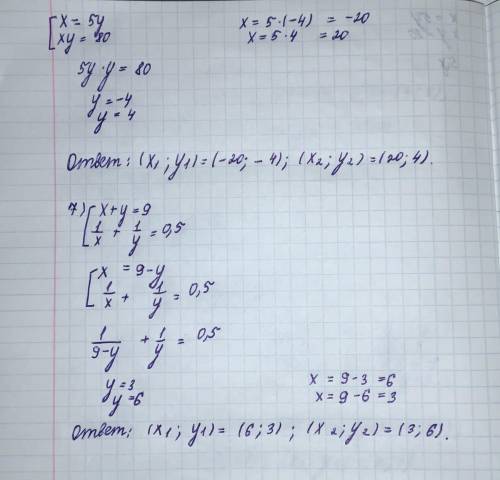 [x = 5y
xy = 80
x = 5·(-4) = -20
x = 5·4 = 20
5y·y = 80
y = -4
y = 4
Ответ: (x₁; y₁) = (-20; -4); (x₂; y₂) = (20; 4).
7) [x + y = 9
1/x + 1/y = 0,5
[x = 9 - y
1/x + 1/y = 0,5
1/(9-y) + 1/y = 0,5
y = 3
y = 6
x = 9 - 3 = 6
x = 9 - 6 = 3
Ответ: (x₁; y₁) = (6; 3); (x₂; y₂) = (3; 6).